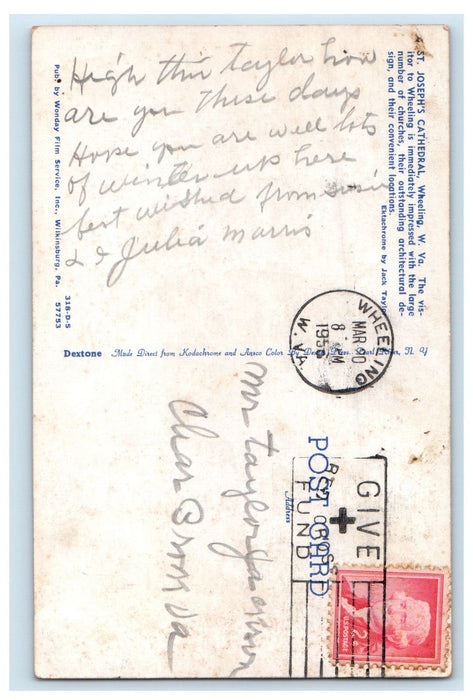 ST. JOSEPH'S CATHEDRAL, Wheeling, W. Va. The vis-
itor to Wheeling is immediately impressed with the large
number of churches, their outstanding architectural de-
sign, and their convenient locations.
Ektachrome by Jack Taylor
High thir taylor how
are you these days
Hope you are well lots
of winter up here
best wished from Susie
& Julia Marris
Pub. by Wonday Film Service, Inc., Wilkinsburg, Pa.
318-D-5
57753
Dextone Made Direct from Kodachrome and Ansco Color By Dexter Press, Pearl River, N. Y.
WHEELING
MAR 20
8 PM
195
W. VA.
POST CARD
Address
GIVE
RED CROSS
FUND
Mr taylor
Char
va
U.S. POSTAGE
2¢